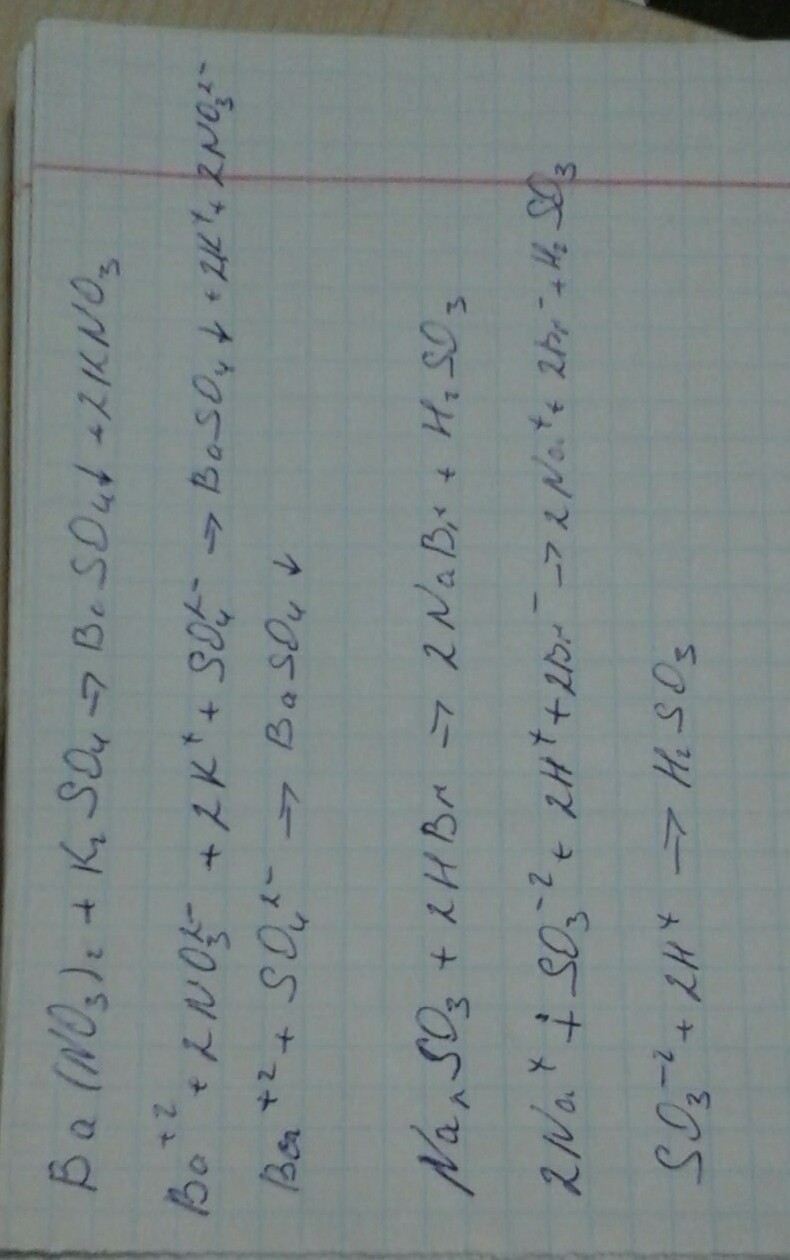 Ba(NO₃)₂ + K₂SO₄ → BaSO₄↓ + 2KNO₃
Ba⁺² + 2NO₃²⁻ + 2K⁺ + SO₄²⁻ → BaSO₄↓ + 2K⁺ + 2NO₃²⁻
Ba⁺² + SO₄²⁻ → BaSO₄↓
Na₂SO₃ + 2HBr → 2NaBr + H₂SO₃
2Na⁺ + SO₃⁻² + 2H⁺ + 2Br⁻ → 2Na⁺ + 2Br⁻ + H₂SO₃
SO₃⁻² + 2H⁺ → H₂SO₃